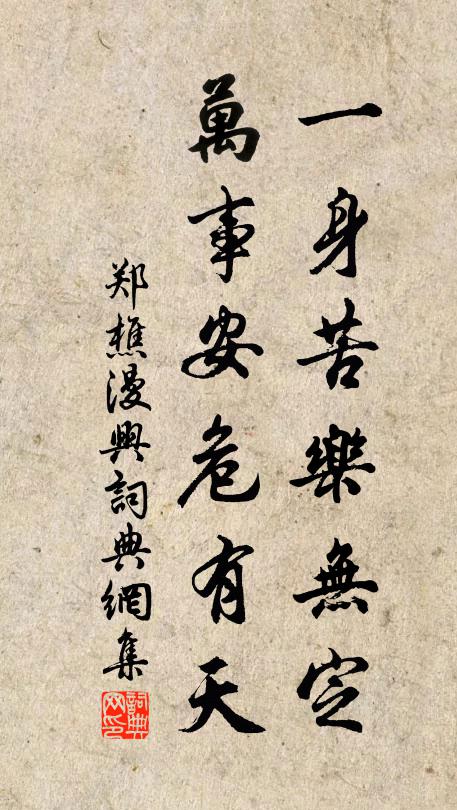 一身苦樂無定
萬事安危有天
郑樵漫興詞典網集
詞典網印